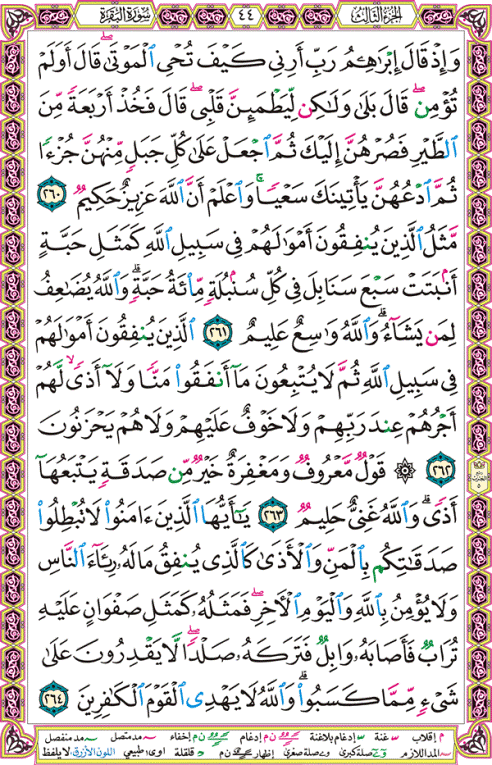 الجزء الثالث
٤٤
سورة البقرة
وَإِذْ قَالَ إِبْرَٰهِـۧمُ رَبِّ أَرِنِى كَيْفَ تُحْىِ ٱلْمَوْتَىٰ ۖ قَالَ أَوَلَمْ
تُؤْمِن ۖ قَالَ بَلَىٰ وَلَـٰكِن لِّيَطْمَئِنَّ قَلْبِى ۖ قَالَ فَخُذْ أَرْبَعَةً مِّنَ
ٱلطَّيْرِ فَصُرْهُنَّ إِلَيْكَ ثُمَّ ٱجْعَلْ عَلَىٰ كُلِّ جَبَلٍ مِّنْهُنَّ جُزْءًا
ثُمَّ ٱدْعُهُنَّ يَأْتِينَكَ سَعْيًا ۚ وَٱعْلَمْ أَنَّ ٱللَّهَ عَزِيزٌ حَكِيمٌ ٢٦٠
مَّثَلُ ٱلَّذِينَ يُنفِقُونَ أَمْوَٰلَهُمْ فِى سَبِيلِ ٱللَّهِ كَمَثَلِ حَبَّةٍ
أَنۢبَتَتْ سَبْعَ سَنَابِلَ فِى كُلِّ سُنۢبُلَةٍ مِّا۟ئَةُ حَبَّةٍ ۗ وَٱللَّهُ يُضَـٰعِفُ
لِمَن يَشَآءُ ۗ وَٱللَّهُ وَٰسِعٌ عَلِيمٌ ٢٦١ ٱلَّذِينَ يُنفِقُونَ أَمْوَٰلَهُمْ
فِى سَبِيلِ ٱللَّهِ ثُمَّ لَا يُتْبِعُونَ مَآ أَنفَقُوا۟ مَنًّا وَلَآ أَذًى ۙ لَّهُمْ
أَجْرُهُمْ عِندَ رَبِّهِمْ وَلَا خَوْفٌ عَلَيْهِمْ وَلَا هُمْ يَحْزَنُونَ
٢٦٢ ۞ قَوْلٌ مَّعْرُوفٌ وَمَغْفِرَةٌ خَيْرٌ مِّن صَدَقَةٍ يَتْبَعُهَآ
أَذًى ۗ وَٱللَّهُ غَنِىٌّ حَلِيمٌ ٢٦٣ يَـٰٓأَيُّهَا ٱلَّذِينَ ءَامَنُوا۟ لَا تُبْطِلُوا۟
صَدَقَـٰتِكُم بِٱلْمَنِّ وَٱلْأَذَىٰ كَٱلَّذِى يُنفِقُ مَالَهُۥ رِئَآءَ ٱلنَّاسِ
وَلَا يُؤْمِنُ بِٱللَّهِ وَٱلْيَوْمِ ٱلْـَٔاخِرِ ۖ فَمَثَلُهُۥ كَمَثَلِ صَفْوَانٍ عَلَيْهِ
تُرَابٌ فَأَصَابَهُۥ وَابِلٌ فَتَرَكَهُۥ صَلْدًا ۖ لَّا يَقْدِرُونَ عَلَىٰ
شَىْءٍ مِّمَّا كَسَبُوا۟ ۗ وَٱللَّهُ لَا يَهْدِى ٱلْقَوْمَ ٱلْكَـٰفِرِينَ ٢٦٤
م إقلاب س غنة س إدغام بلاغنة ن م إدغام ن م إخفاء مد متصل مد منفصل
المد اللازم صلة كبرى وصلة صغرى إظهار ن م قلقلة اوى؛ طبيعي اللون الأزرق: لا يلفظ